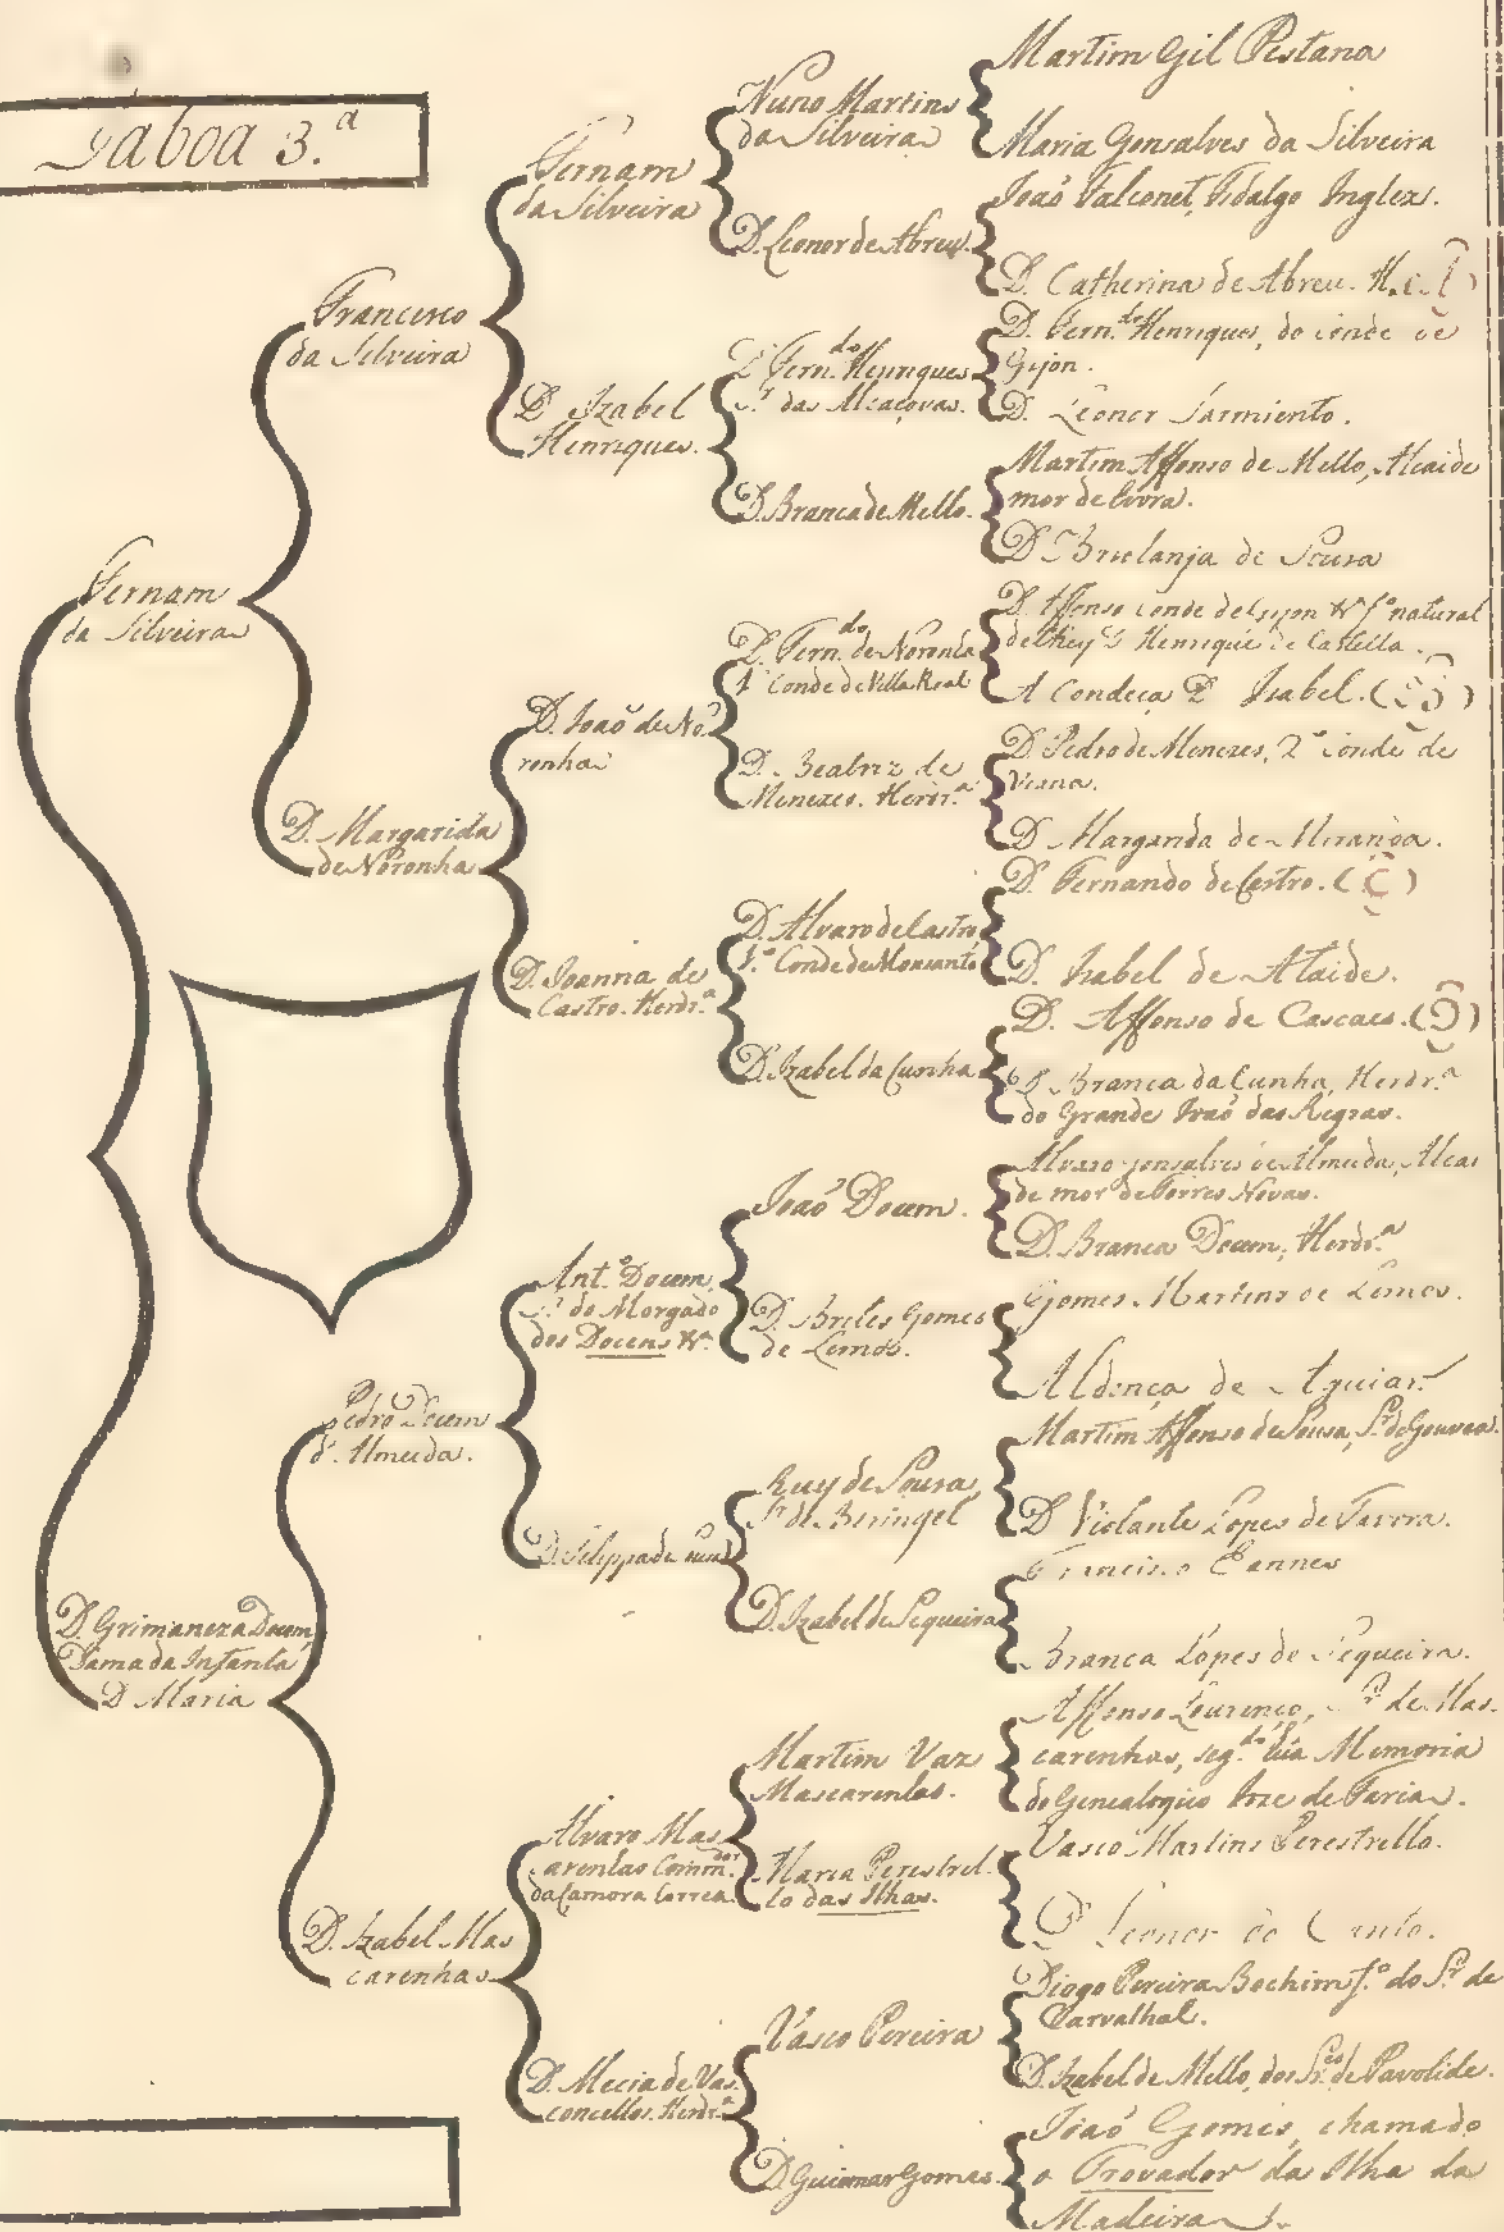 Taboa 3.ª
Fernam
da Silveira
D. Grimaneza Docem
Dama da Infanta
D Maria
Francisco
da Silveira
D. Margarida
de Noronha
Pedro Docem
d'Almeida.
D. Izabel Mas
carenhas
Fernam
da Silveira
D Izabel
Henriques.
D. Joaõ de No
ronha
D. Joanna de
Castro. Herdr.ª
Ant.º Docem,
S.r do Morgado
dos Docens &.ª
D. Felippa de
Alvaro Mas
carenhas Comm.dor
da Camora Correa.
D. Mecia de Vas
concellos. Herdr.ª
Nuno Martins
da Silveira
D. Leonor de Abreu.
D. Fern.do Henriques
S.r das Alcaçovas.
D. Branca de Mello.
D. Fern.do de Noronha
1º Conde de Villa Real
D. Beatriz de
Menezes. Herdr.ª
D. Alvaro de Castro,
1.º Conde de Monsanto
D. Izabel da Cunha
Joaõ Docem.
D. Brites Gomes
de Lemos.
Ruy de Sousa,
S.r de Beringel
D. Izabel de Sequeira
Martim Vaz
Mascarenhas.
Maria Perestrel
lo das Ilhas.
Vasco Pereira
D Guiomar Gomes.
Martim Gil Pestana
Maria Gonsalves da Silveira
Joaõ Falconet, Fidalgo Inglez.
D. Catherina de Abreu. H.
D. Fern.do Henriques, do Conde de
Gijon.
D. Leonor Sarmiento.
Martim Affonso de Mello, Alcaide
mor de Evora.
D Briolanja de Sousa
D. Affonso Conde de Gijon &.ª f.º natural
delRey D Henrique de Castella.
A Condeça D Isabel.
D. Pedro de Menezes, 2º Conde de
Viana.
D Margarida de Miranda.
D. Fernando de Castro. (C)
D. Isabel de Ataide.
D. Affonso de Cascaes. (D)
D. Branca da Cunha, Herdr.ª
do Grande Joaõ das Regras.
Alvaro Gonsalves de Almeida, Alcai
de mor de Torres Novas.
D. Branca Docem, Herdr.ª
Gomes Martins de Lemos.
Aldonça de Aguiar.
Martim Affonso de Sousa, S.r de Gouvea.
D Violante Lopes de Tavora.
Francisco Eannes
Branca Lopes de Sequeira.
Affonso Lourenço, S.r de Mas
carenhas, seg.do hũa Memoria
do Genealogico Joze de Faria.
Vasco Martins Perestrello.
D Leonor do Canto.
Diogo Pereira Bochim f.º do S.r de
Carvalhal.
D. Izabel de Mello, dos S.res de Pavolide.
Joaõ Gomes, chamado
o Trovador da Ilha da
Madeira